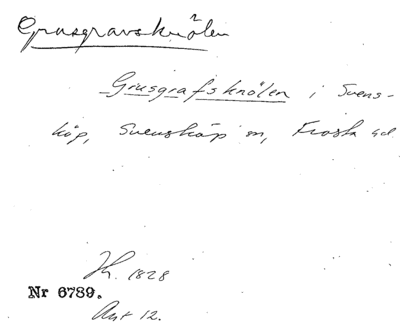 Grusgravsknölen
Grusgrafsknölen i Svens-
köp, Svensköp sn, Frosta hd
Nr 6789.
Akt 12.